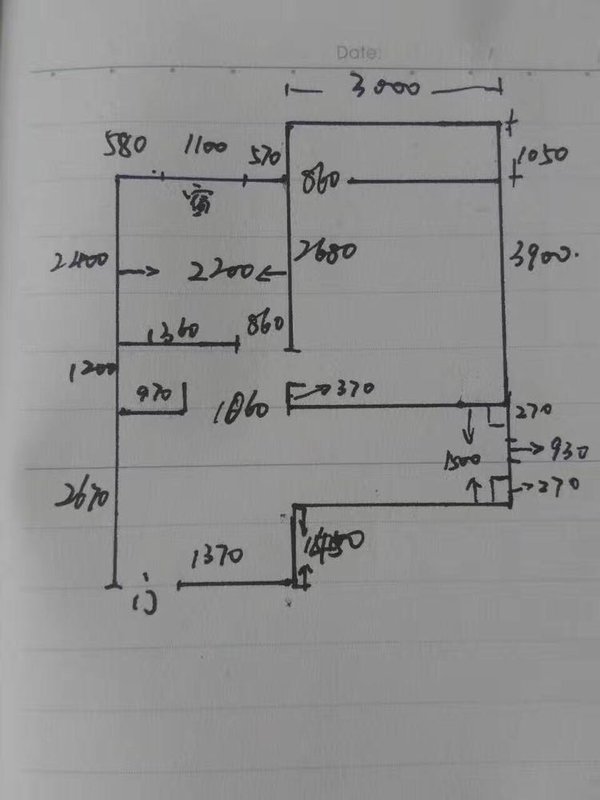 Date:
3000
580 1100 570
1050
窗
860
2400
2200
2680
3900.
1360
860
1200
970
370
1060
270
1500
930
2670
270
1370
门